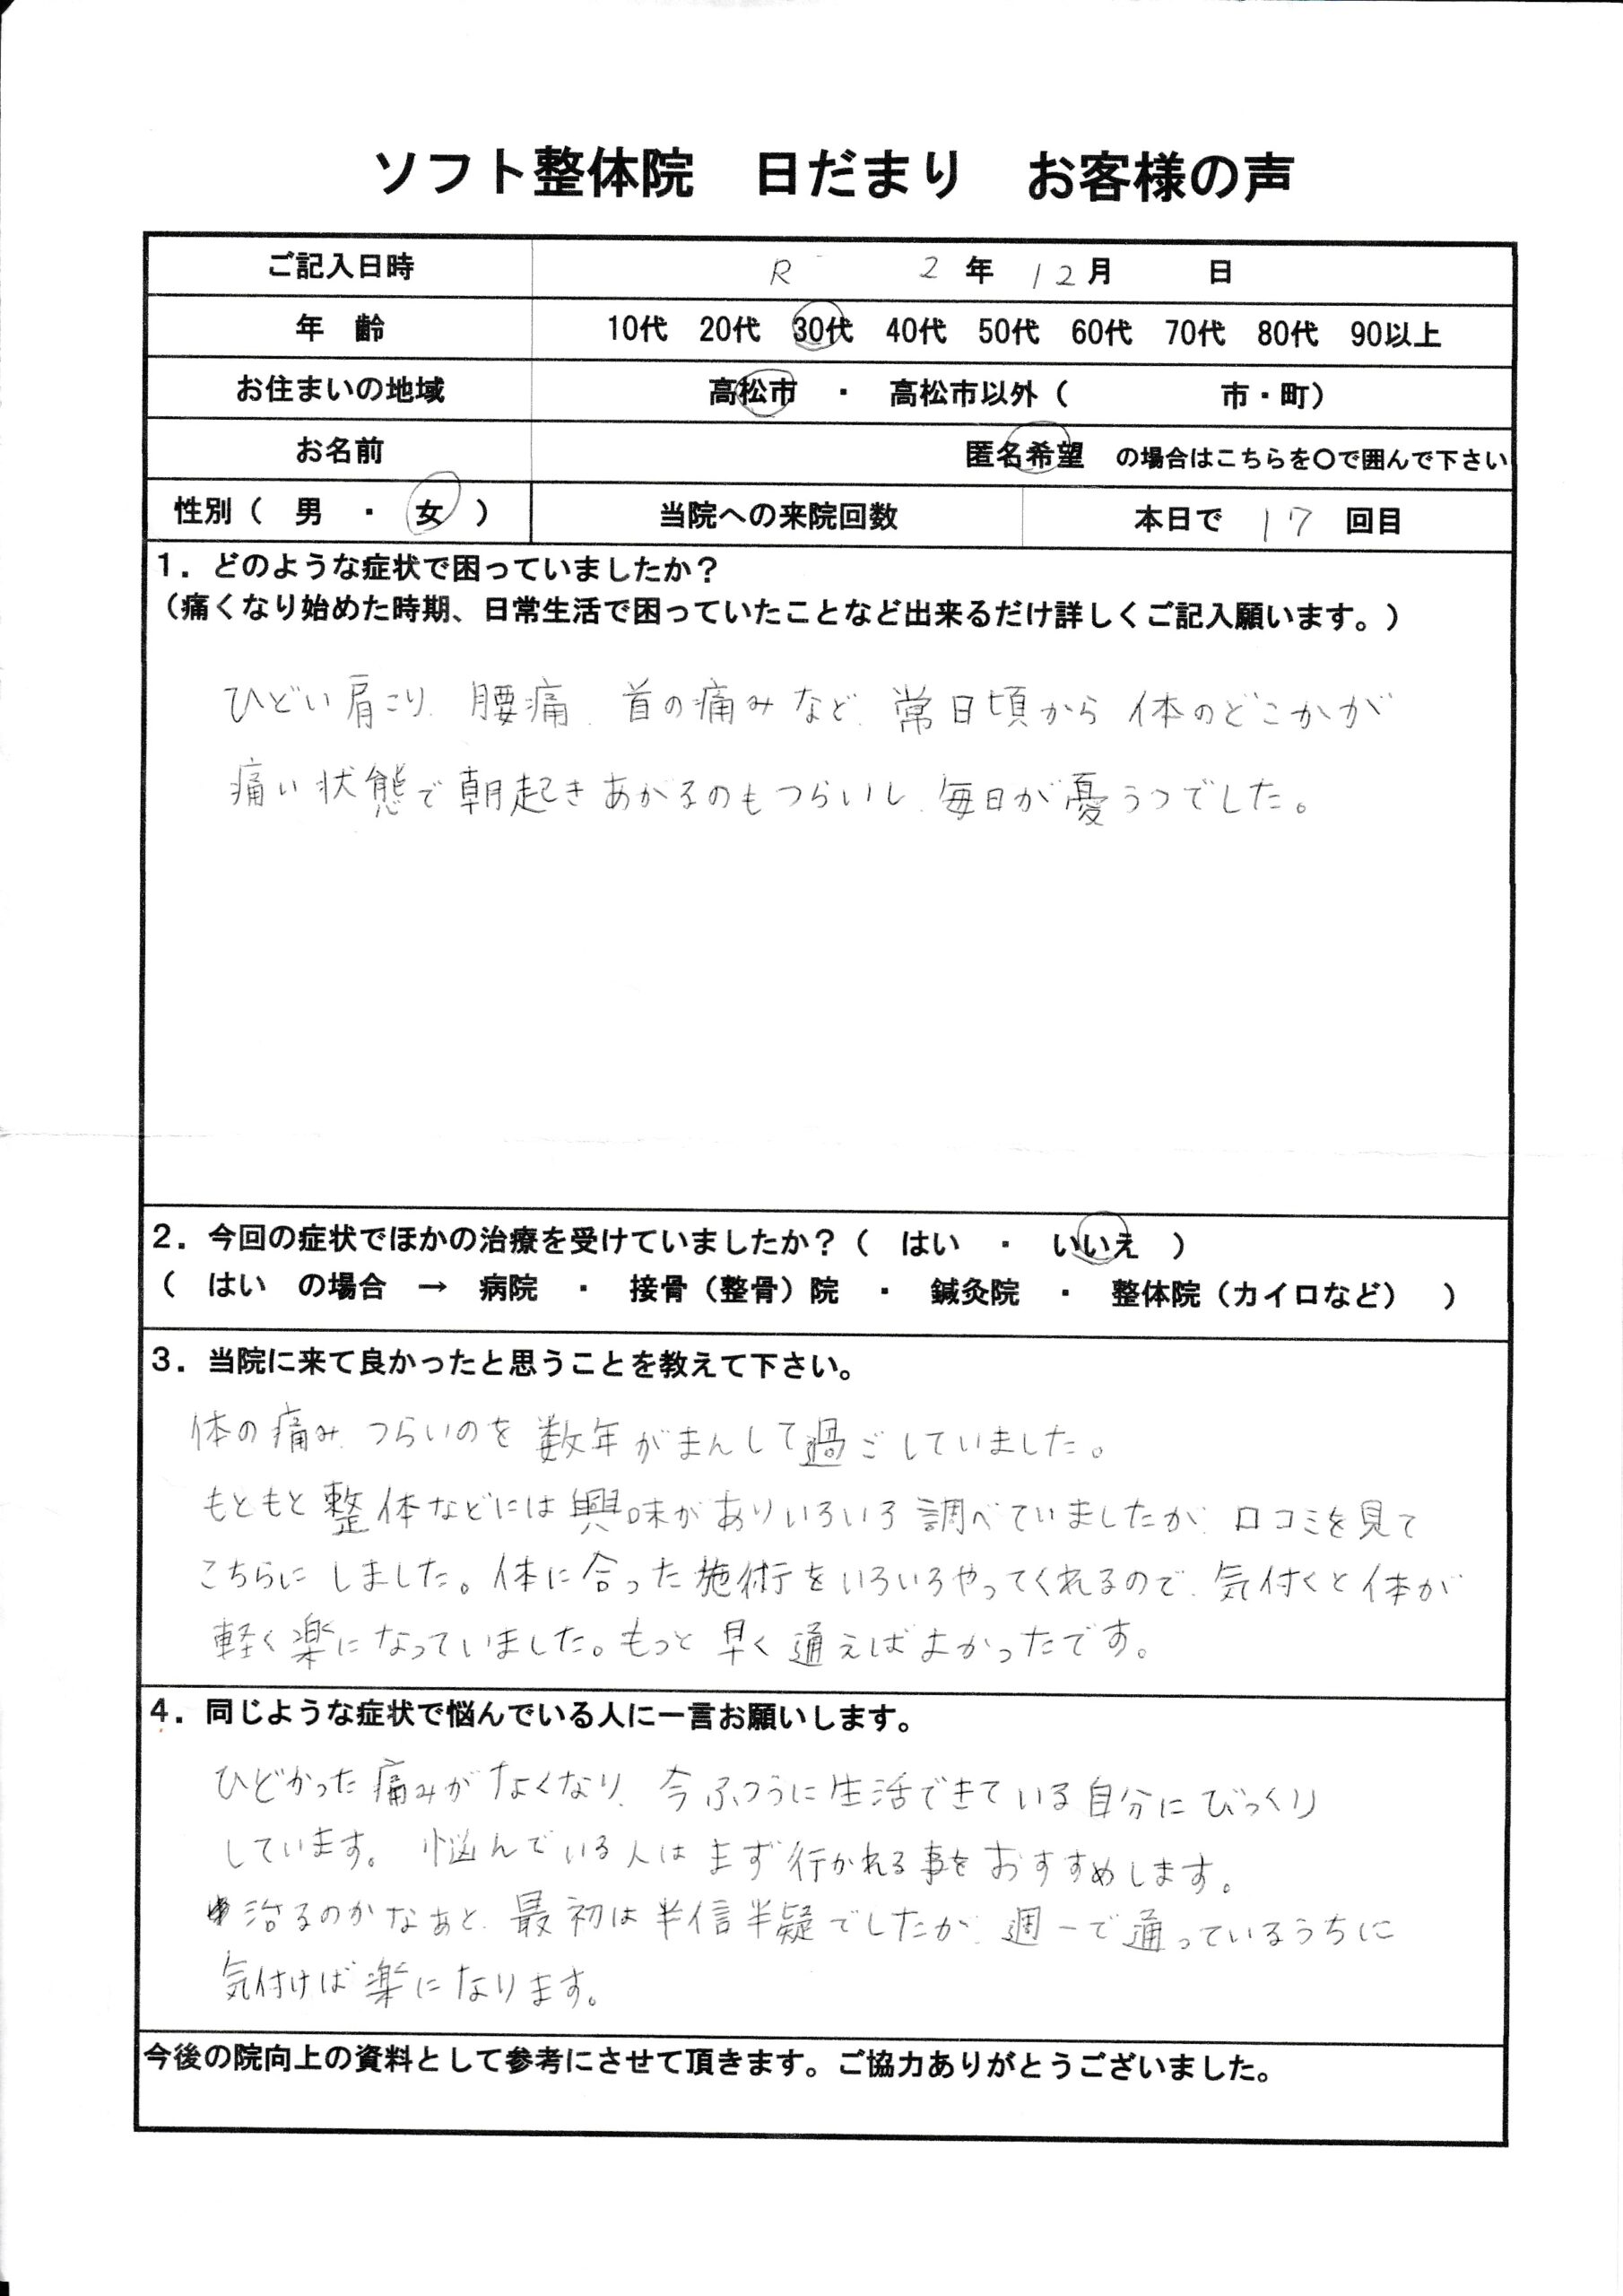 ソフト整体院　日だまり　お客様の声
ご記入日時　R 2 年 12 月　日
年　齢　10代　20代　30代　40代　50代　60代　70代　80代　90以上
お住まいの地域　高松市　・　高松市以外（　市・町）
お名前　匿名希望　の場合はこちらを〇で囲んで下さい
性別（　男　・　女　）　当院への来院回数　本日で　17　回目
1．どのような症状で困っていましたか？
（痛くなり始めた時期、日常生活で困っていたことなど出来るだけ詳しくご記入願います。）
ひどい肩こり、腰痛、首の痛みなど、常日頃から体のどこかが
痛い状態で朝起きあがるのもつらいし、毎日が憂うつでした。
2．今回の症状でほかの治療を受けていましたか？（　はい　・　いいえ　）
（　はい　の場合　→　病院　・　接骨（整骨）院　・　鍼灸院　・　整体院（カイロなど）　）
3．当院に来て良かったと思うことを教えて下さい。
体の痛み、つらいのを数年がまんして過ごしていました。
もともと整体などには興味がありいろいろ調べていましたが、口コミを見て
こちらにしました。体に合った施術をいろいろやってくれるので、気付くと体が
軽く楽になっていました。もっと早く通えばよかったです。
4．同じような症状で悩んでいる人に一言お願いします。
ひどかった痛みがなくなり、今ふつうに生活できている自分にびっくり
しています。悩んでいる人はまず行かれる事をおすすめします。
治るのかなぁと、最初は半信半疑でしたが、週一で通っているうちに
気付けば楽になります。
今後の院向上の資料として参考にさせて頂きます。ご協力ありがとうございました。